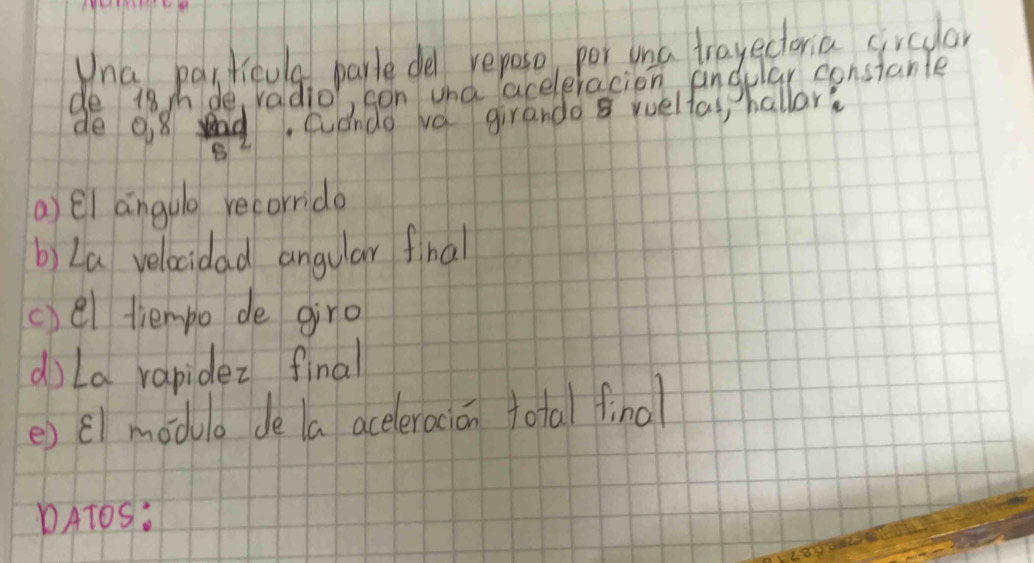 Una partícula parte del reposo, por una trayectoria circular
de 18 m de radio, con una aceleración angular constante
de 0,8 rad/s². Cuando va girando 8 vueltas, hallar:
a) El ángulo recorrido
b) La velocidad angular final
c) el tiempo de giro
d) La rapidez final
e) El módulo de la aceleración total final
DATOS: